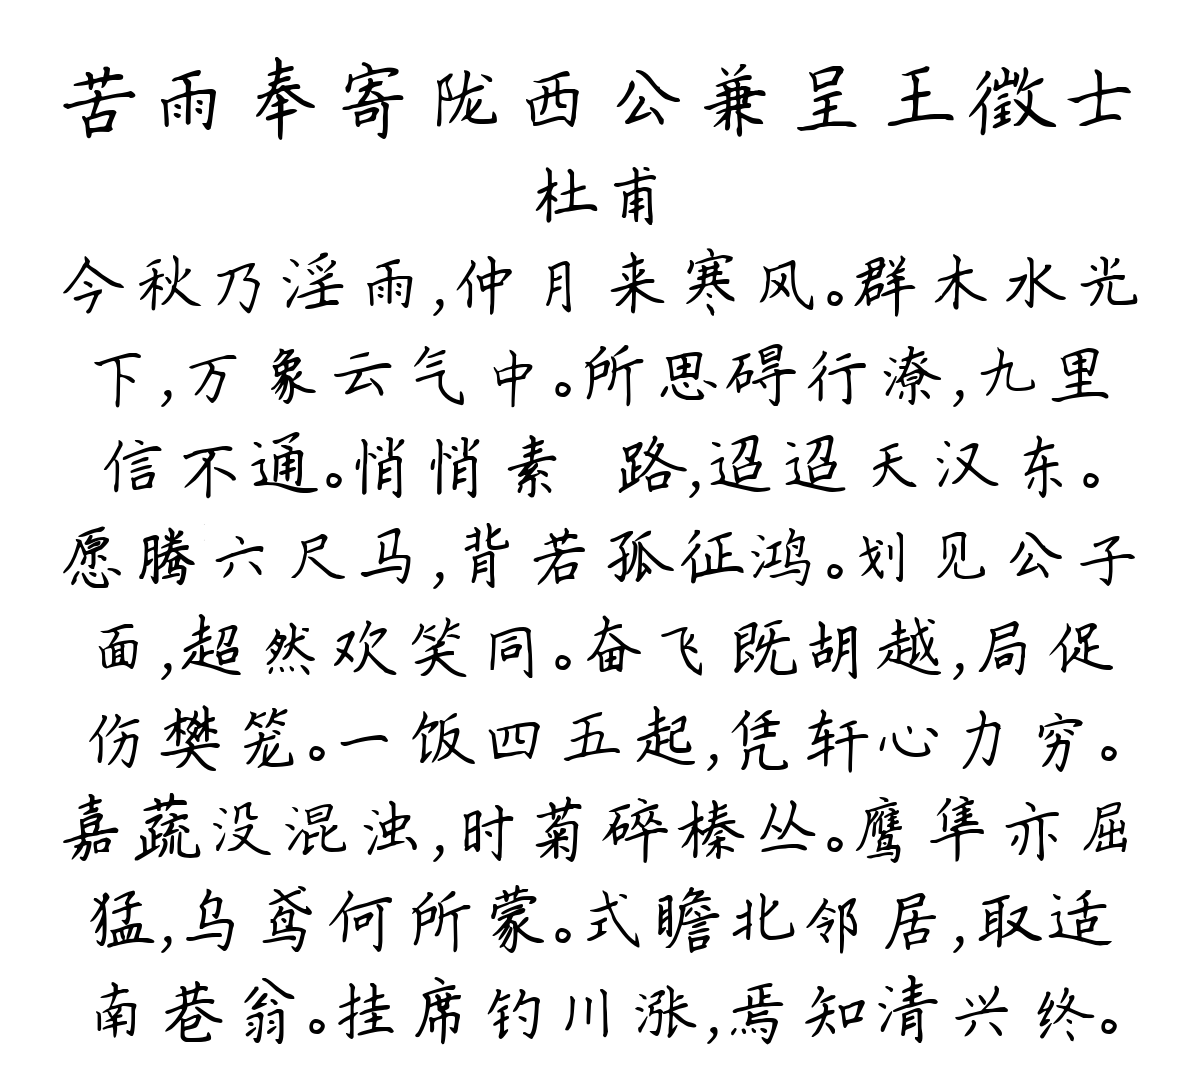 苦雨奉寄陇西公兼呈王徵士
杜甫
今秋乃淫雨,仲月来寒风。群木水光
下,万象云气中。所思碍行潦,九里
信不通。悄悄素 路,迢迢天汉东。
愿腾六尺马,背若孤征鸿。划见公子
面,超然欢笑同。奋飞既胡越,局促
伤樊笼。一饭四五起,凭轩心力穷。
嘉蔬没混浊,时菊碎榛丛。鹰隼亦屈
猛,乌鸢何所蒙。式瞻北邻居,取适
南巷翁。挂席钓川涨,焉知清兴终。